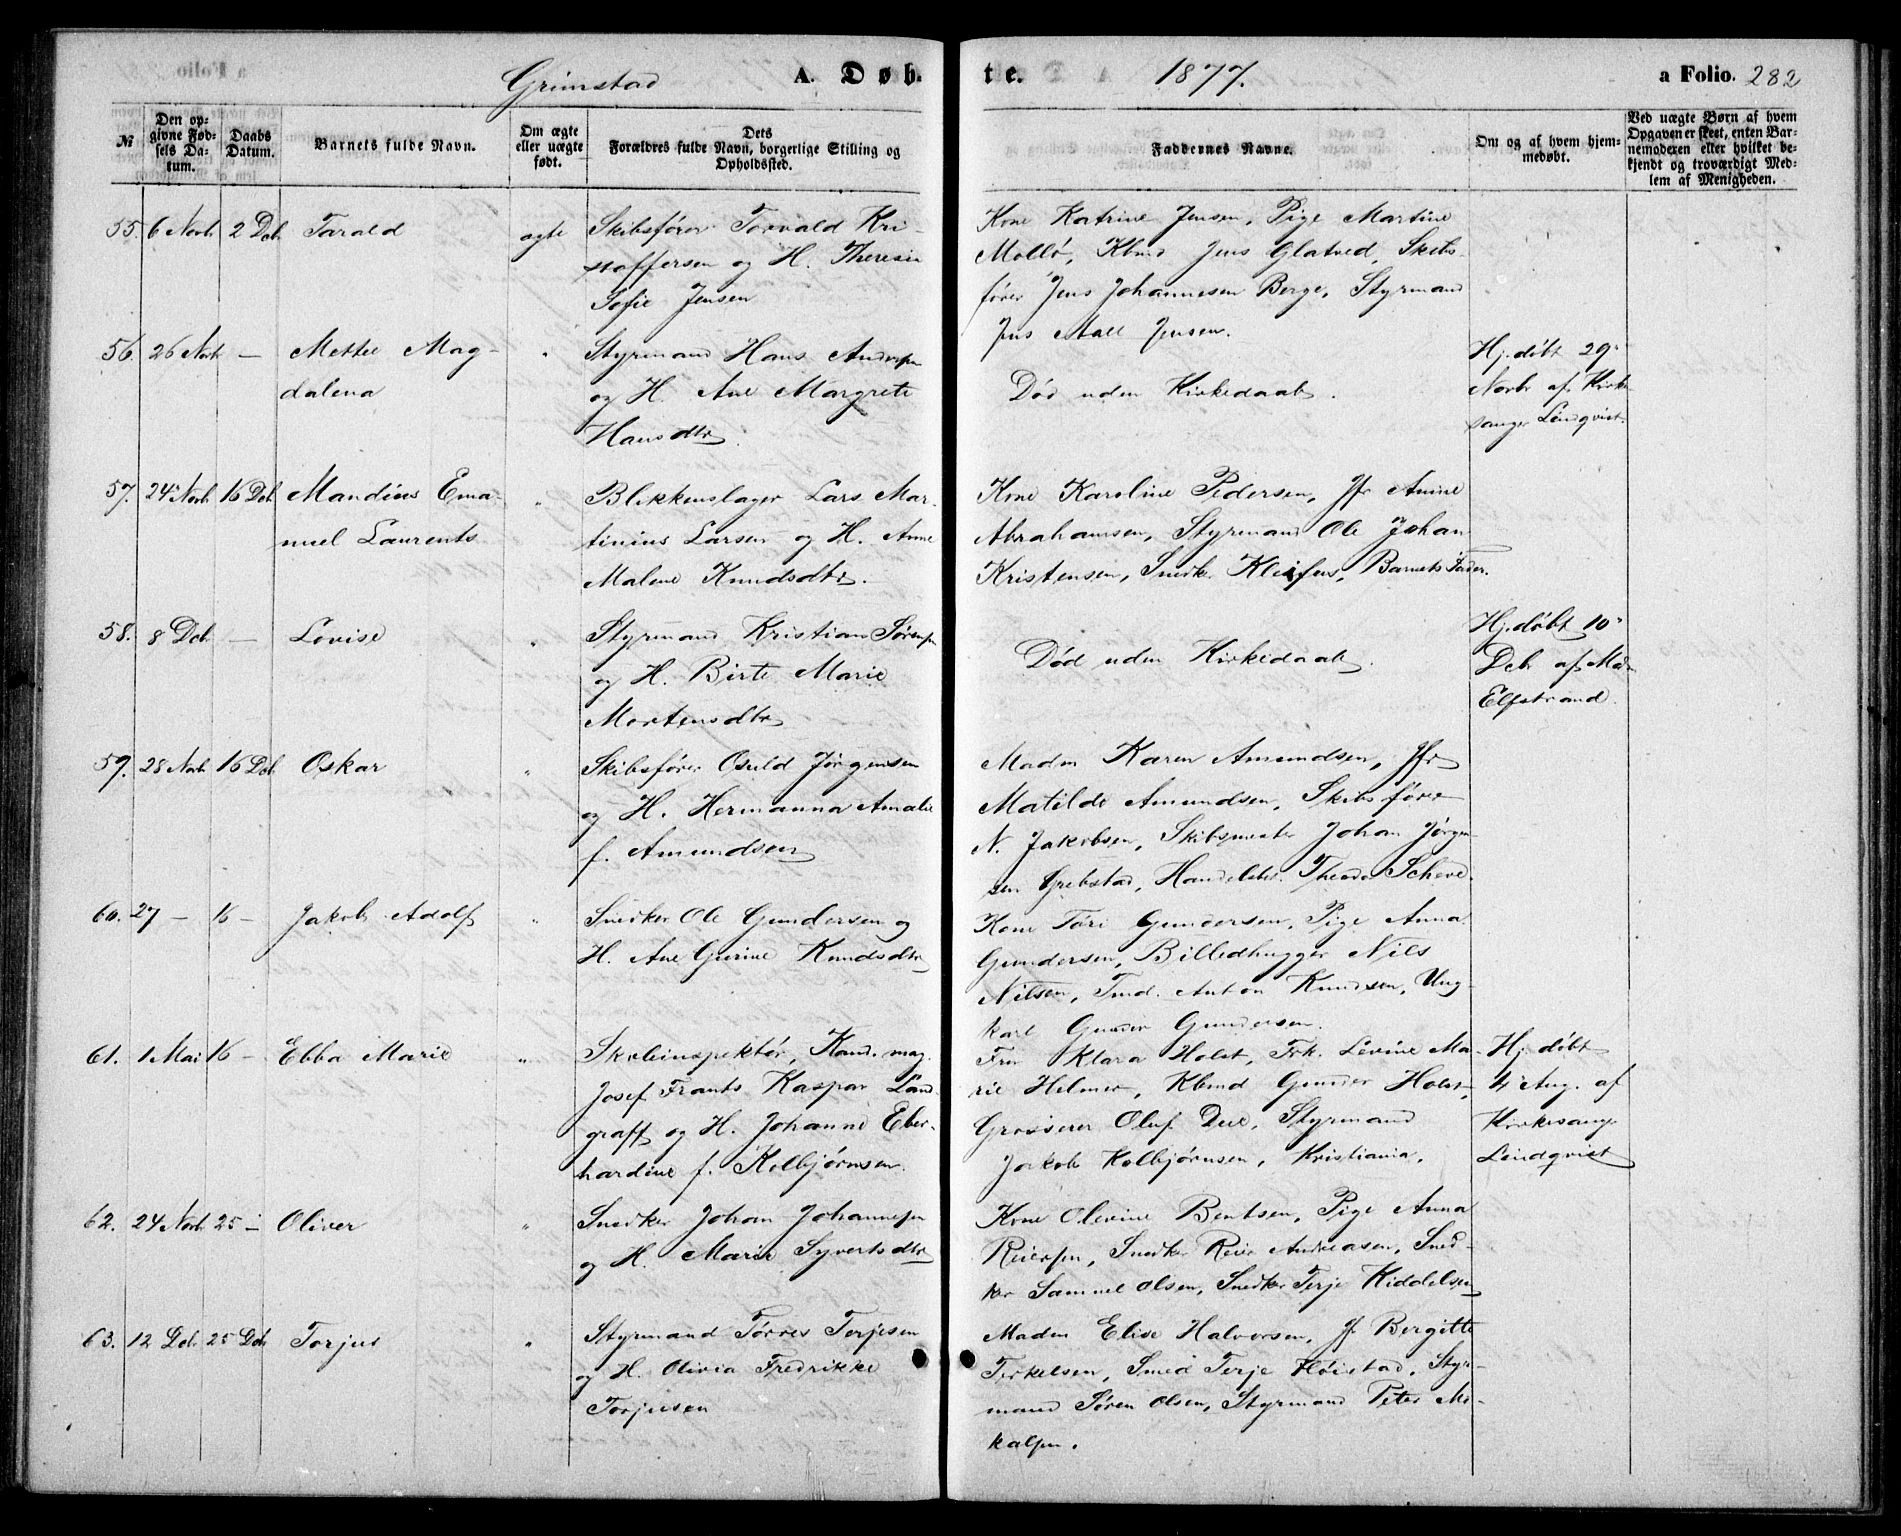 Grimstad A. Døb-
te. 1877. a Folio. 282
№
Den op-
givne Fød-
sels Da-
tum.
Daabs
Datum.
Barnets fulde Navn.
Om ægte
eller uægte
født.
Dets
Forældres fulde Navn, borgerlige Stilling og
Opholdssted.
Faddernes Navne.
Om og af hvem hjem-
medøbt.
Ved uægte Børn af hvem
Opgaven er skeet, enten Bar-
nemoderen eller hvilket be-
kjendt og troværdigt Med-
lem af Menigheden.
55. 6 Novb 2 Deb Tarald ægte Skibsfører Torvald Kri-
stoffersen og H. Theresia
Sofie Jensen
Kone Katrine Jensen, Pige Martine
Mollø, Kbmd Jens Glatved, Skibs-
fører Jens Johannesen Berge, Styrmand
Jens Aall Jensen.
56. 26 Novb — Mette Mag-
dalena
" Styrmand Hans Andersen
og H. Ane Margrete
Hansdtr
Død uden Kirkedaab.
Hj.døbt 29
Novbr af Kirke
sanger Lindqvist.
57. 24 Novb 16 Deb Mandius Ema-
nuel Laurents
" Blikkenslager Lars Mar-
tinius Larsen og H. Anne
Malene Knudsdtr.
Kone Karoline Pedersen, Jfr Anine
Abrahamsen, Styrmand Ole Johan
Kristensen, Snedk. Barnets Fader.
58. 8 Deb — Lovise " Styrmand Kristian Sørensen
og H. Birte Marie
Mortensdtr
Død uden Kirkedaab.
Hj.døbt 10
Debr af
Elfstrand.
59. 28 Novb 16 Deb Oskar " Skibsfører Osuld Jørgensen
og H. Hermanna Amalie
f. Amundsen
Madm Karen Amundsen, Jfr
Matilde Amundsen, Skibsfører
N. Jakobsen, Skibsmester Johan Jørgen-
sen Grebstad, Handelsbet. Theodor Scheve.
60. 27 — 16 — Jakob Adolf " Snedker Ole Gundersen og
H. Ane Gurine Knudsdtr
Kone Tøri Gundersen, Pige Anna
Gundersen, Billedhugger Nils
Nilsen, Tmd. Anton Knudsen, Ung-
karl Gunder Gundersen.
61. 1 Mai 16 — Ebba Marie " Skoleinspektør, Kand. mag.
Josef Frants Kaspar Land-
graff og H. Johanne Eber-
hardine f. Kolbjørnsen.
Fru Klara Holst, Frk. Levine Ma-
rie Helmer, Kbmd Gunder Holst,
Grosserer Oluf Due, Styrmand
Jakob Kolbjørnsen, Kristiania.
Hj.døbt
4 Aug. af
Kirkesanger
Lindqvist
62. 24 Novb 25 — Oliver " Snedker Johan Johannesen
og H. Marie Syvertsdtr
Kone Olevine Bentsen, Pige Anna
Reiersen, Snedker Reier Andreasen, Sned-
ker Samuel Olsen, Snedker Terje Kiddelsen
63. 12 Deb 25 Deb Torjus " Styrmand Tørres Terjesen
og H. Olivia Fredrikke
Torjusen
Madm Elise Halvorsen, Jfr Bergitte
Terkelsen, Smed Terje Fløistad, Styr-
mand Søren Olsen, Styrmand Peter Mi-
kalsen.